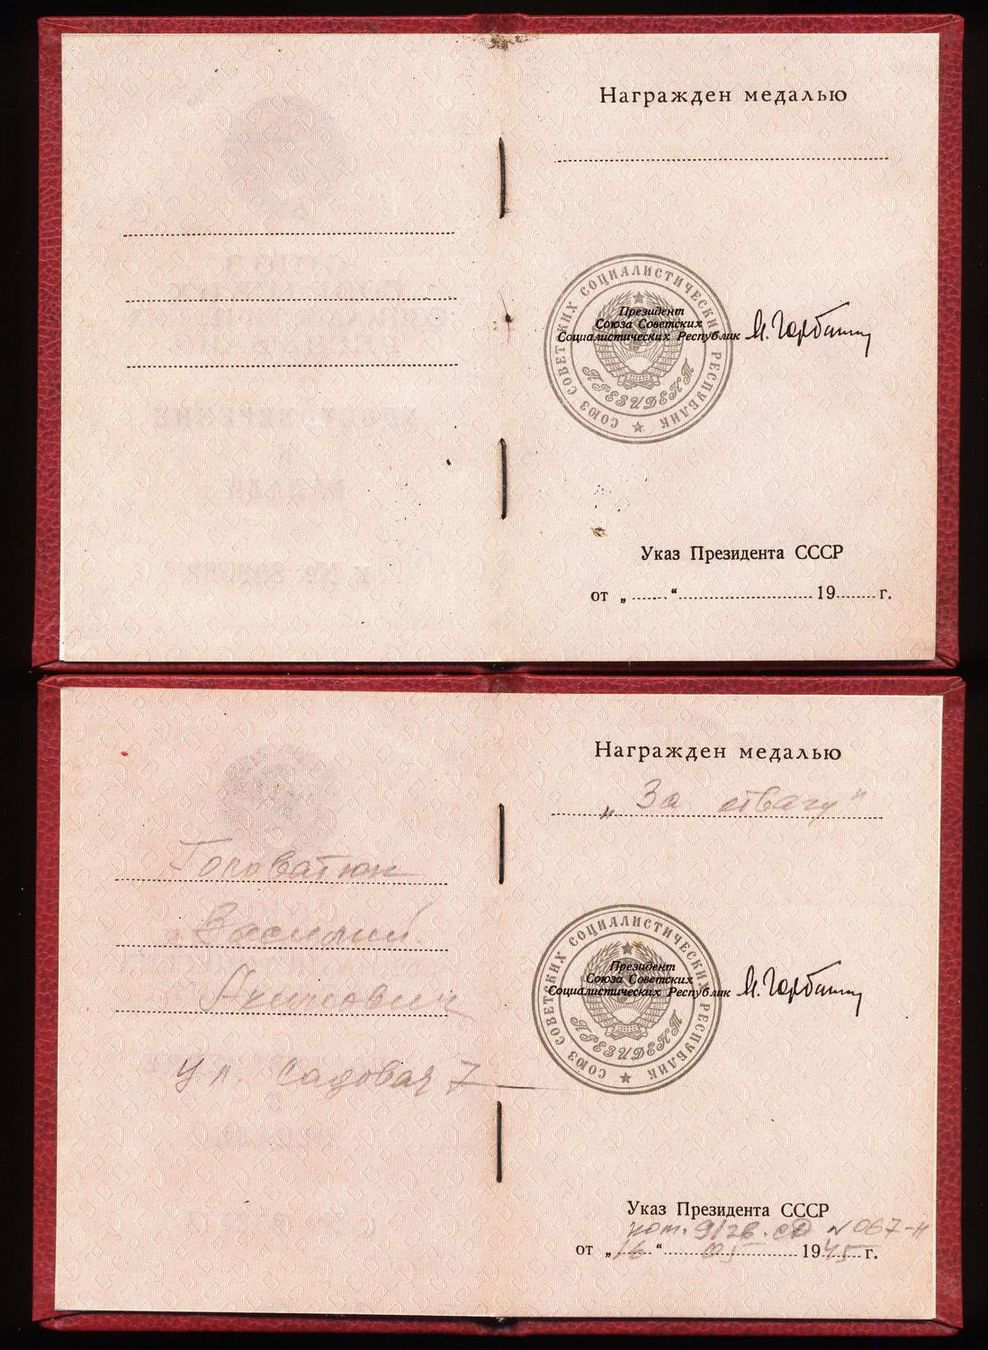 Награжден медалью
СОЮЗ СОВЕТСКИХ СОЦИАЛИСТИЧЕСКИХ РЕСПУБЛИК
ПРЕЗИДЕНТ
Президент
Союза Советских
Социалистических Республик
Указ Президента СССР
от „ “ 19 г.
Награжден медалью
„За отвагу“
Головатюк
Василий
ул. Садовая 7
СОЮЗ СОВЕТСКИХ СОЦИАЛИСТИЧЕСКИХ РЕСПУБЛИК
ПРЕЗИДЕНТ
Президент
Союза Советских
Социалистических Республик
Указ Президента СССР
N 067-н
от „16“ 05 1945 г.